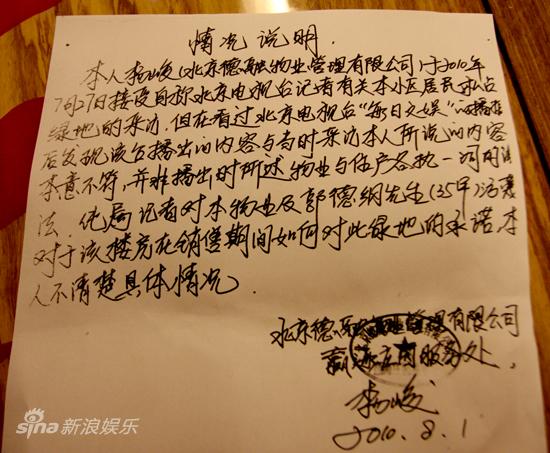 情况说明.
本人杨峻(北京德融物业管理有限公司)于2010年
7月27日接受自称北京电视台记者有关本小区居民占
绿地的采访,但在看过北京电视台"每日文娱"的播出
后发现该台播出的内容与当时采访本人所说的内容
本意不符,并非播出时所述物业与住户各执一词
法.使局记者对本物业及郭德纲先生(35甲)
对于该楼房在销售期间如何对此绿地的承诺.本
人不清楚具体情况.
北京德融物业管理有限公司
服务处.
杨峻
2010.8.1
sina新浪娱乐